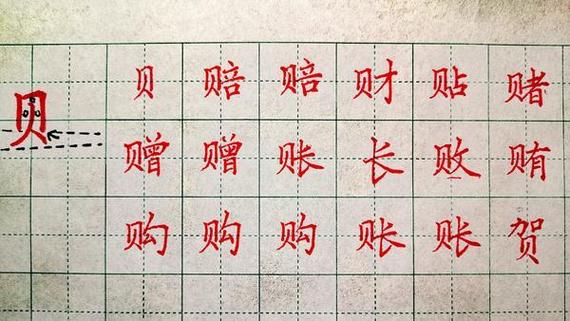 贝 贝 赔 赔 财 贴 赌
赠 赠 账 长 败 贿
购 购 购 账 账 贺